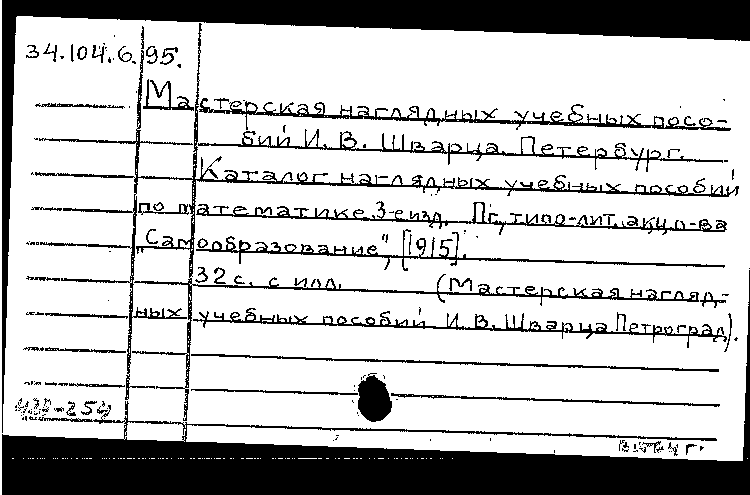 34.104.6.95.
Мастерская наглядных учебных посо-
бий И. В. Шварца. Петербург.
Каталог наглядных учебных пособий
по математике. 3-е изд. Пг., типо-лит. акц. о-ва
„Самообразование", [1915].
32 с. с илл. (Мастерская нагляд-
ных учебных пособий И. В. Шварца Петроград).